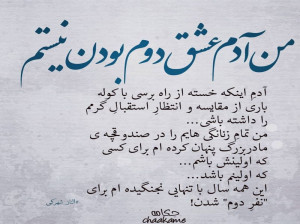 من آدم عشق دوم بودن نیستم
آدم اینکه خسته از راه برسی با کوله
باری از مقایسه و انتظار استقبال گرمم
را داشته باشی...
من تمام زنانگی هایم را در صندوقچه ی
مادربزرگ پنهان کرده ام برای کسی
که اولینش باشم...
که اولینم باشد...
این همه سال با تنهایی نجنگیده ام برای
"نفر دوم" شدن!
چکامه
chaakame